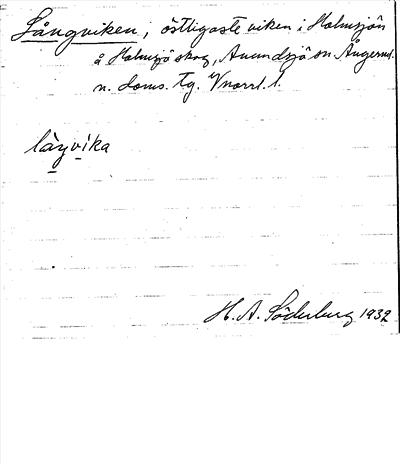 Långviken, östligaste viken i Holmsjön
å Holmsjö skog, Anundsjö sn. Ångerml.
n. doms. tg. Vnorrl. l.
làŋvika
H. A. Söderberg 1932